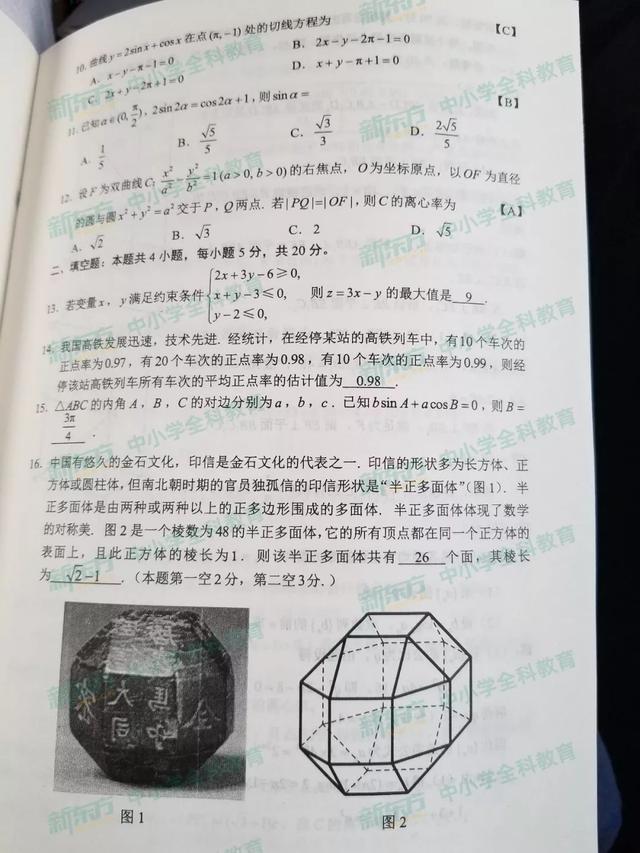 10. 曲线y=2sinx+cosx在点(π,-1)处的切线方程为 【C】
A. x-y-π-1=0 B. 2x-y-2π-1=0
C. 2x+y-2π+1=0 D. x+y-π+1=0
11. 已知α∈(0,π/2), 2sin2α=cos2α+1, 则sinα= 【B】
A. 1/5 B. √5/5 C. √3/3 D. 2√5/5
12. 设F为双曲线C: x²/a²-y²/b²=1(a>0,b>0)的右焦点, O为坐标原点, 以OF为直径
的圆与圆x²+y²=a²交于P, Q两点. 若|PQ|=|OF|, 则C的离心率为 【A】
A. √2 B. √3 C. 2 D. √5
二、填空题：本题共4小题，每小题5分，共20分。
13. 若变量x, y满足约束条件{2x+3y-6≥0, x+y-3≤0, y-2≤0, 则z=3x-y的最大值是 9 .
14. 我国高铁发展迅速，技术先进. 经统计，在经停某站的高铁列车中，有10个车次的
正点率为0.97，有20个车次的正点率为0.98，有10个车次的正点率为0.99，则经
停该站高铁列车所有车次的平均正点率的估计值为 0.98 .
15. △ABC的内角A, B, C的对边分别为a, b, c. 已知bsinA+acosB=0, 则B=
3π/4 .
16. 中国有悠久的金石文化，印信是金石文化的代表之一. 印信的形状多为长方体、正
方体或圆柱体，但南北朝时期的官员独孤信的印信形状是“半正多面体”(图1). 半
正多面体是由两种或两种以上的正多边形围成的多面体. 半正多面体体现了数学
的对称美. 图2是一个棱数为48的半正多面体，它的所有顶点都在同一个正方体的
表面上，且此正方体的棱长为1. 则该半正多面体共有 26 个面，其棱长
为 √2-1 .(本题第一空2分，第二空3分.)
图1
图2
新东方 中小学全科教育